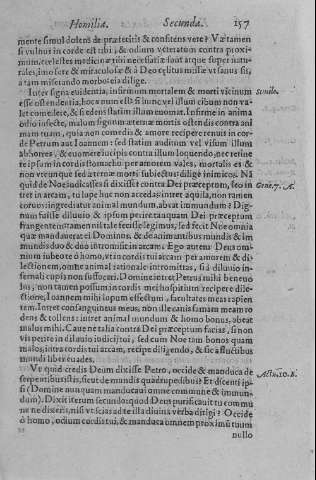 Homilia. Secunda. 157
mente simul dolens de præteritis & confitens vere? Væ tamen
si vulnut in corde est tibi, & odium veteratum contra proxi-
mum, cœlestes medicinæ tibi necessariæ sunt atque super natu-
rales, imo fore & miraculosæ & à Deo cœlitus missæ vt sanus sis,
à tam miserando morbo seia dilige.
Inter signa euidentia, infirmum mortalem & morti vicinum Simile.
esse ostendentia, hoc vnum est si hunc vel illum cibum non va-
let comedere, & si edens statim illum euomat. Infirme in anima
odio infecte, malum signum æternæ mortis ostendis contra ani
mam tuam, quia non comedis & amore recipere renuis in cor-
de Petrum aut Ioannem: sed statim audiens vel visum illum
abhorres, & euomere incipis contra illum loquendo, nec retine
re ipsum in cordis stomacho per amorem vales, mortalis es &
non viuens que sed æternæ morti subiectus: dilige inimicos. Nã
quid de Noe iudicasses si dixisset contra Dei præceptum, leo in Gene.7. A.
tret in arcam, lupe huc non accedas: intret aquila, non tamen
coruus ingrediatur: animal mundum, abeat immundum? Dig-
num fuisse diluuio & ipsum perire tanquam Dei præceptum
frangentem: attamen nil tale fecisse legimus, sed fecit Noe omnia
quæ mandauerat ei Dominus, & de animantibus mundis & im
mundis duo & duo intromisit in arcam. Ego autem Deus om-
nium iubeo te ô homo, vt in arcam cordis tui per amorem & di-
lectionem, omne animal rationale intromittas, si à diluuio in-
fernali cupis non suffocari. Domine intret Petrus mihi beneuo
lus, non tamen possum in cordis mei hospitium recipere dile-
ctione, Ioannem mihi lupum effectum, facultates meas rapien
tem. Intret consanguineus meus, non ille canis famam meam ro
dens & tollens: intret animal mundum & homo bonus, abeat
malus mihi. Caue ne talia contra Dei præceptum facias, si non
vis perire in diluuio iudicij tui, sed cum Noe tam bonos quam
malos, intra cordis tui arcam, recipe diligendo, & sic a fluctibus
mundi liber euades.
Vt quid credis Deum dixisse Petro, occide & manduca de Actu.10. B.
serpentibus istis, sicut de mundis quadrupedibus? Et dicenti ip-
si (Domine nunquam manducaui omne commune & immun-
dum). Dixit iterum secundo: quod Deus purificauit tu commu
ne ne dixeris, nisi vt scias ad te illa diuina verba dirigi? Occide
ô homo, odium cordis tui, & manduca omnem proximũ tuum
nullo